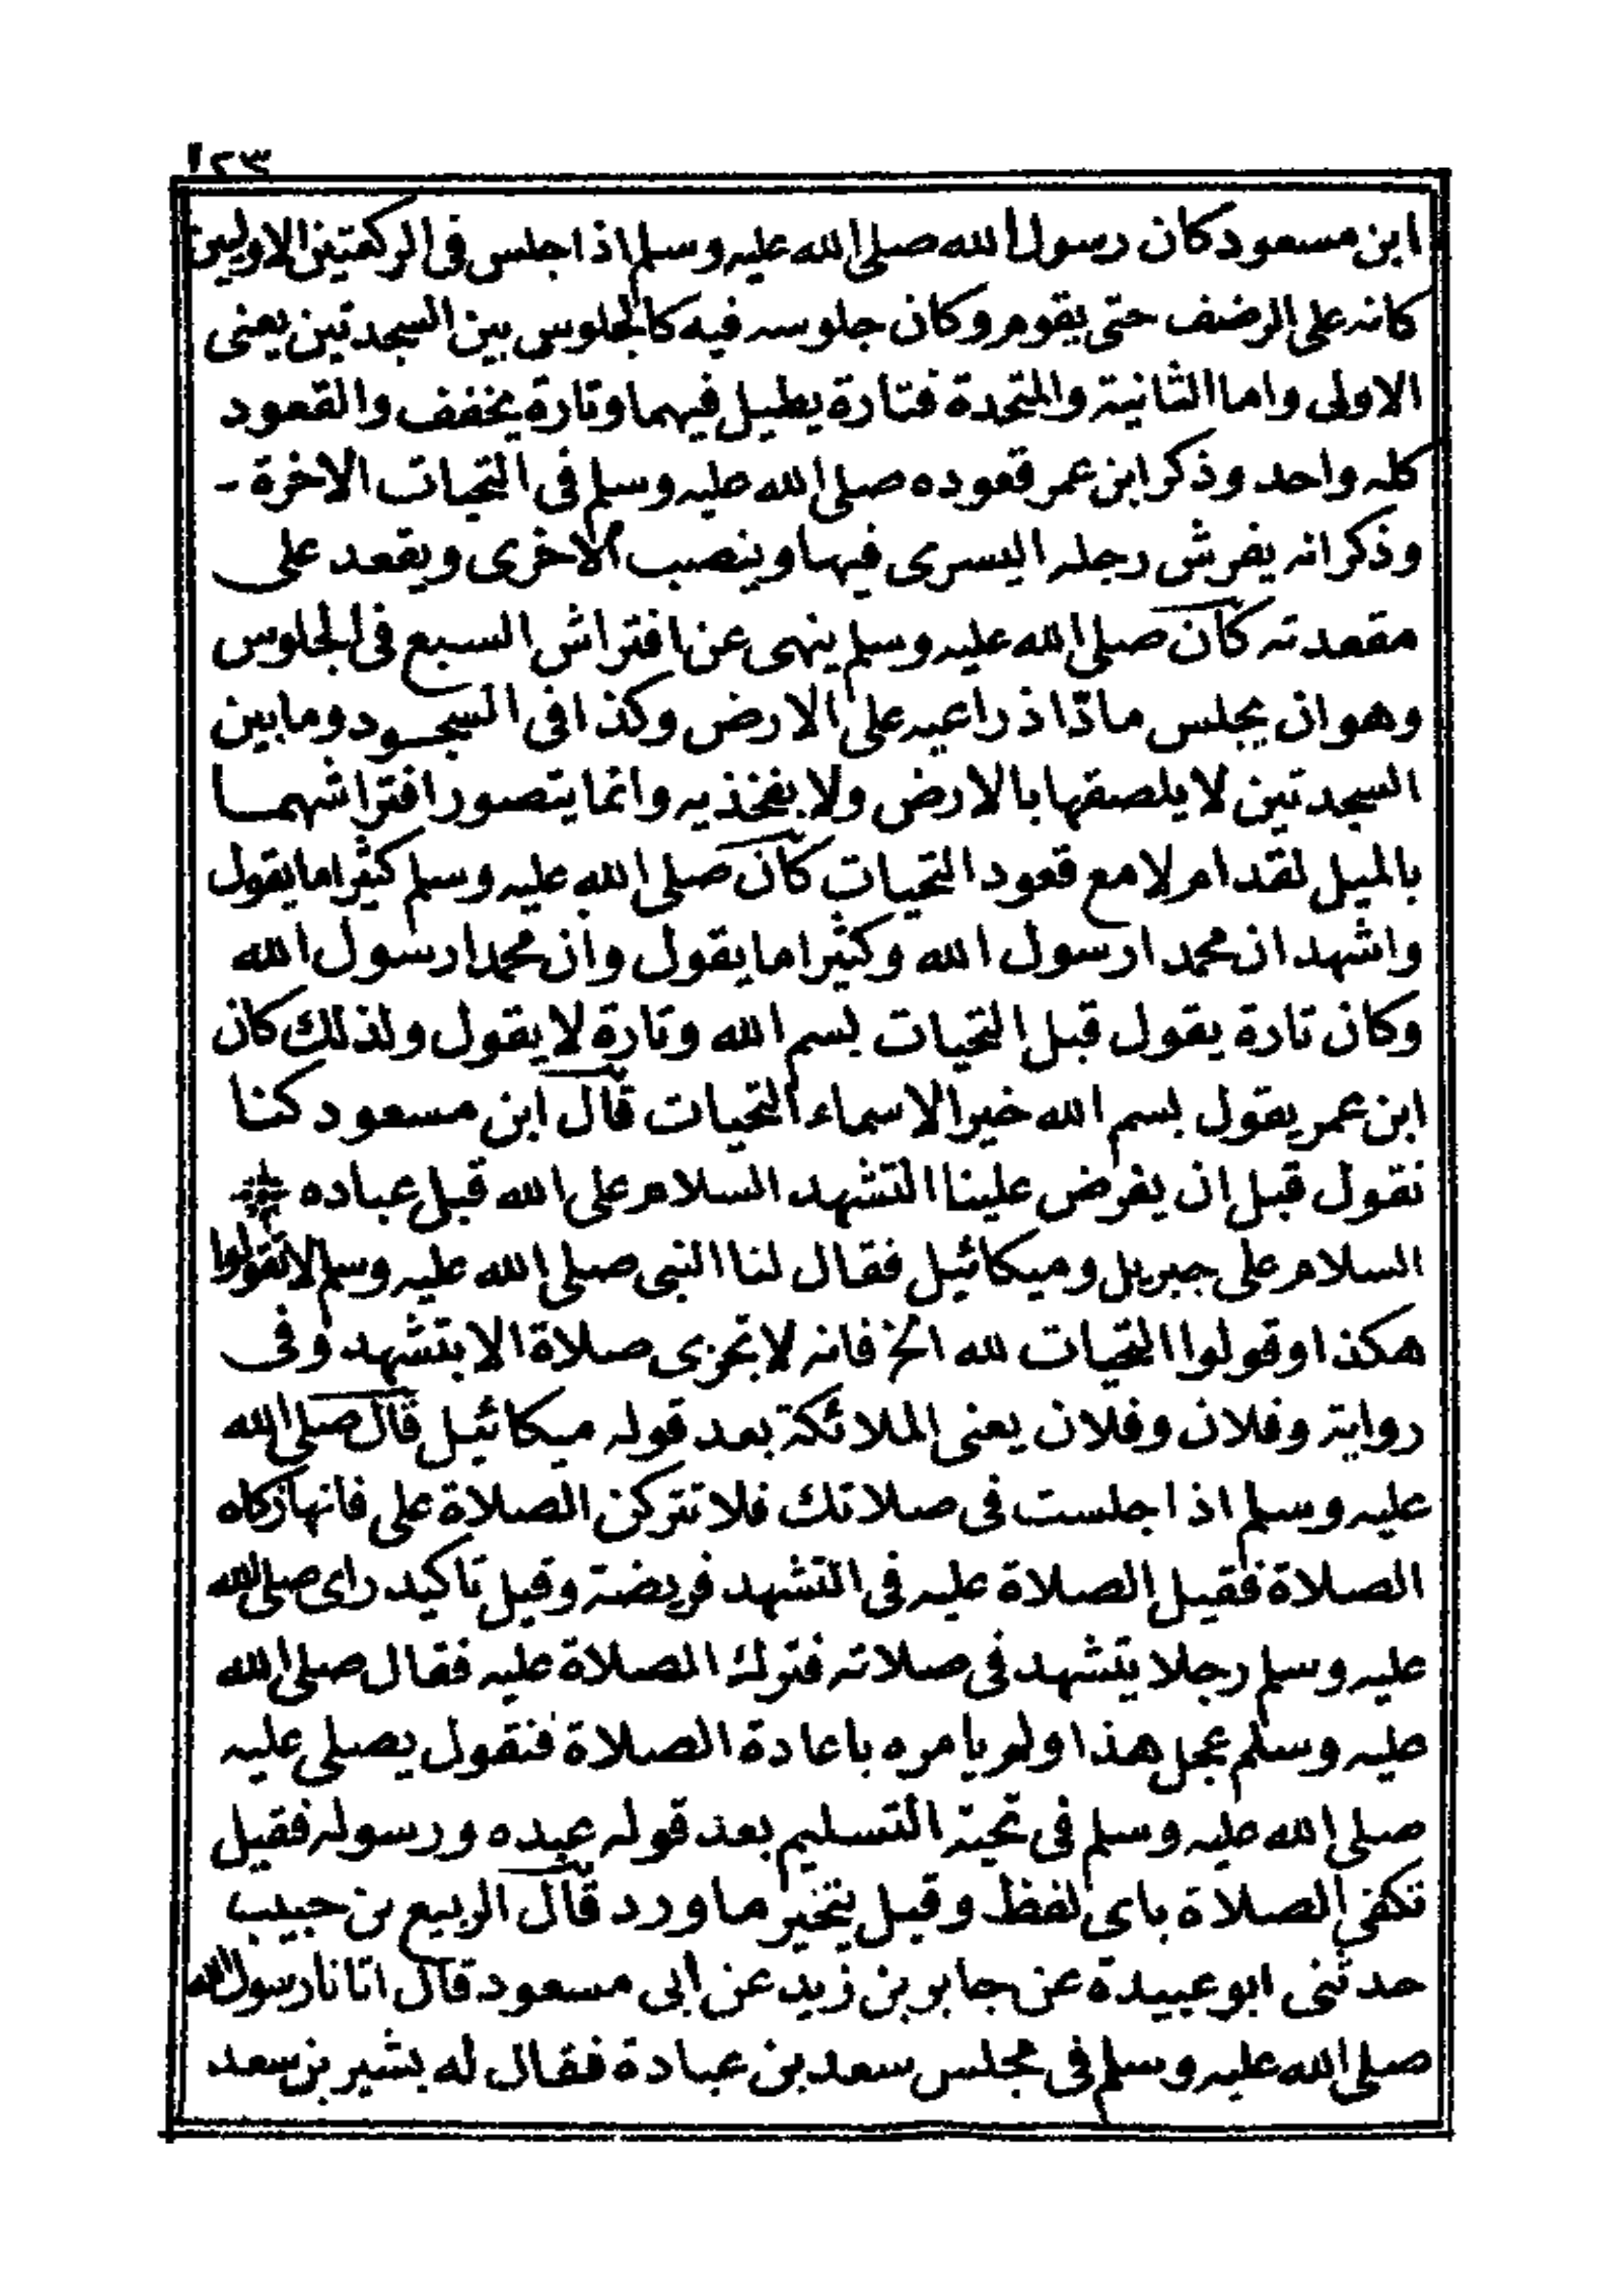 ١٢٣
ابن مسعود كان رسول الله صلى الله عليه وسلم اذا جلس فى الركعتين الاوليين
كانه على الرضف حتى يقوم وكان جلوسه فيه كالجلوس بين السجدتين يعنى
الاولى واما الثانية والمتحدة فتارة يطيل فيهما وتارة يخفف والقعود
كله واحد وذكر ابن عمر قعوده صلى الله عليه وسلم فى التحيات الاخرة -
وذكر انه يفرش رجله اليسرى فيها وينصب الاخرى ويقعد على
مقعدته كان صلى الله عليه وسلم ينهى عن افتراش السبع فى الجلوس
وهو ان يجلس مادّا ذراعيه على الارض وكذا فى السجود وما بين
السجدتين لا يلصقها بالارض ولا بفخذيه وانما يتصور افتراشهما
بالميل لقدام لا مع قعود التحيات كان صلى الله عليه وسلم كثيرا ما يقول
واشهد ان محمدا رسول الله وكثيرا ما يقول وان محمدا رسول الله
وكان تارة يقول قبل التحيات بسم الله وتارة لا يقول ولذلك كان
ابن عمر يقول بسم الله خير الاسماء التحيات قال ابن مسعود كنا
نقول قبل ان يفرض علينا التشهد السلام على الله قبل عباده
السلام على جبريل وميكائيل فقال لنا النبى صلى الله عليه وسلم لا تقولوا
هكذا وقولوا التحيات لله الخ فانه لا تجزى صلاة الا بتشهد وفى
رواية وفلان وفلان يعنى الملائكة بعد قوله ميكائيل قال صلى الله
عليه وسلم اذا جلست فى صلاتك فلا تتركن الصلاة على فانها زكاه
الصلاة فقيل الصلاة عليه فى التشهد فريضة وقيل تاكيد راى صلى الله
عليه وسلم رجلا يتشهد فى صلاته فترك الصلاة عليه فقال صلى الله
عليه وسلم عجل هذا ولم يامره باعادة الصلاة فنقول يصلى عليه
صلى الله عليه وسلم فى تحية التسليم بعد قوله عبده ورسوله فقيل
تكفى الصلاة باى لفظ وقيل يتخير ما ورد قال الربيع بن حبيب
حدثنى ابو عبيدة عن جابر بن زيد عن ابى مسعود قال اتانا رسول الله
صلى الله عليه وسلم فى مجلس سعد بن عبادة فقال له بشير بن سعد